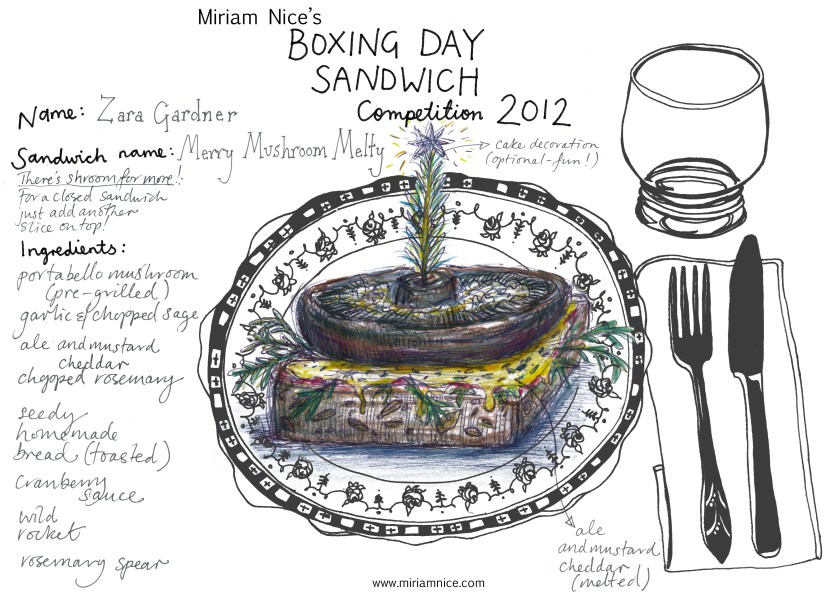 Miriam Nice's
BOXING DAY
SANDWICH
Competition 2012
Name: Zara Gardner
Sandwich name: Merry Mushroom Melty
There's shroom for more!
For a closed sandwich
just add another
slice on top!
cake decoration
(optional-fun!)
Ingredients:
portabello mushroom
(pre-grilled)
garlic & chopped sage
ale and mustard
cheddar
chopped rosemary
seedy
homemade
bread (toasted)
Cranberry
sauce
wild
rocket
rosemary spear
ale
and mustard
cheddar
(melted)
www.miriamnice.com